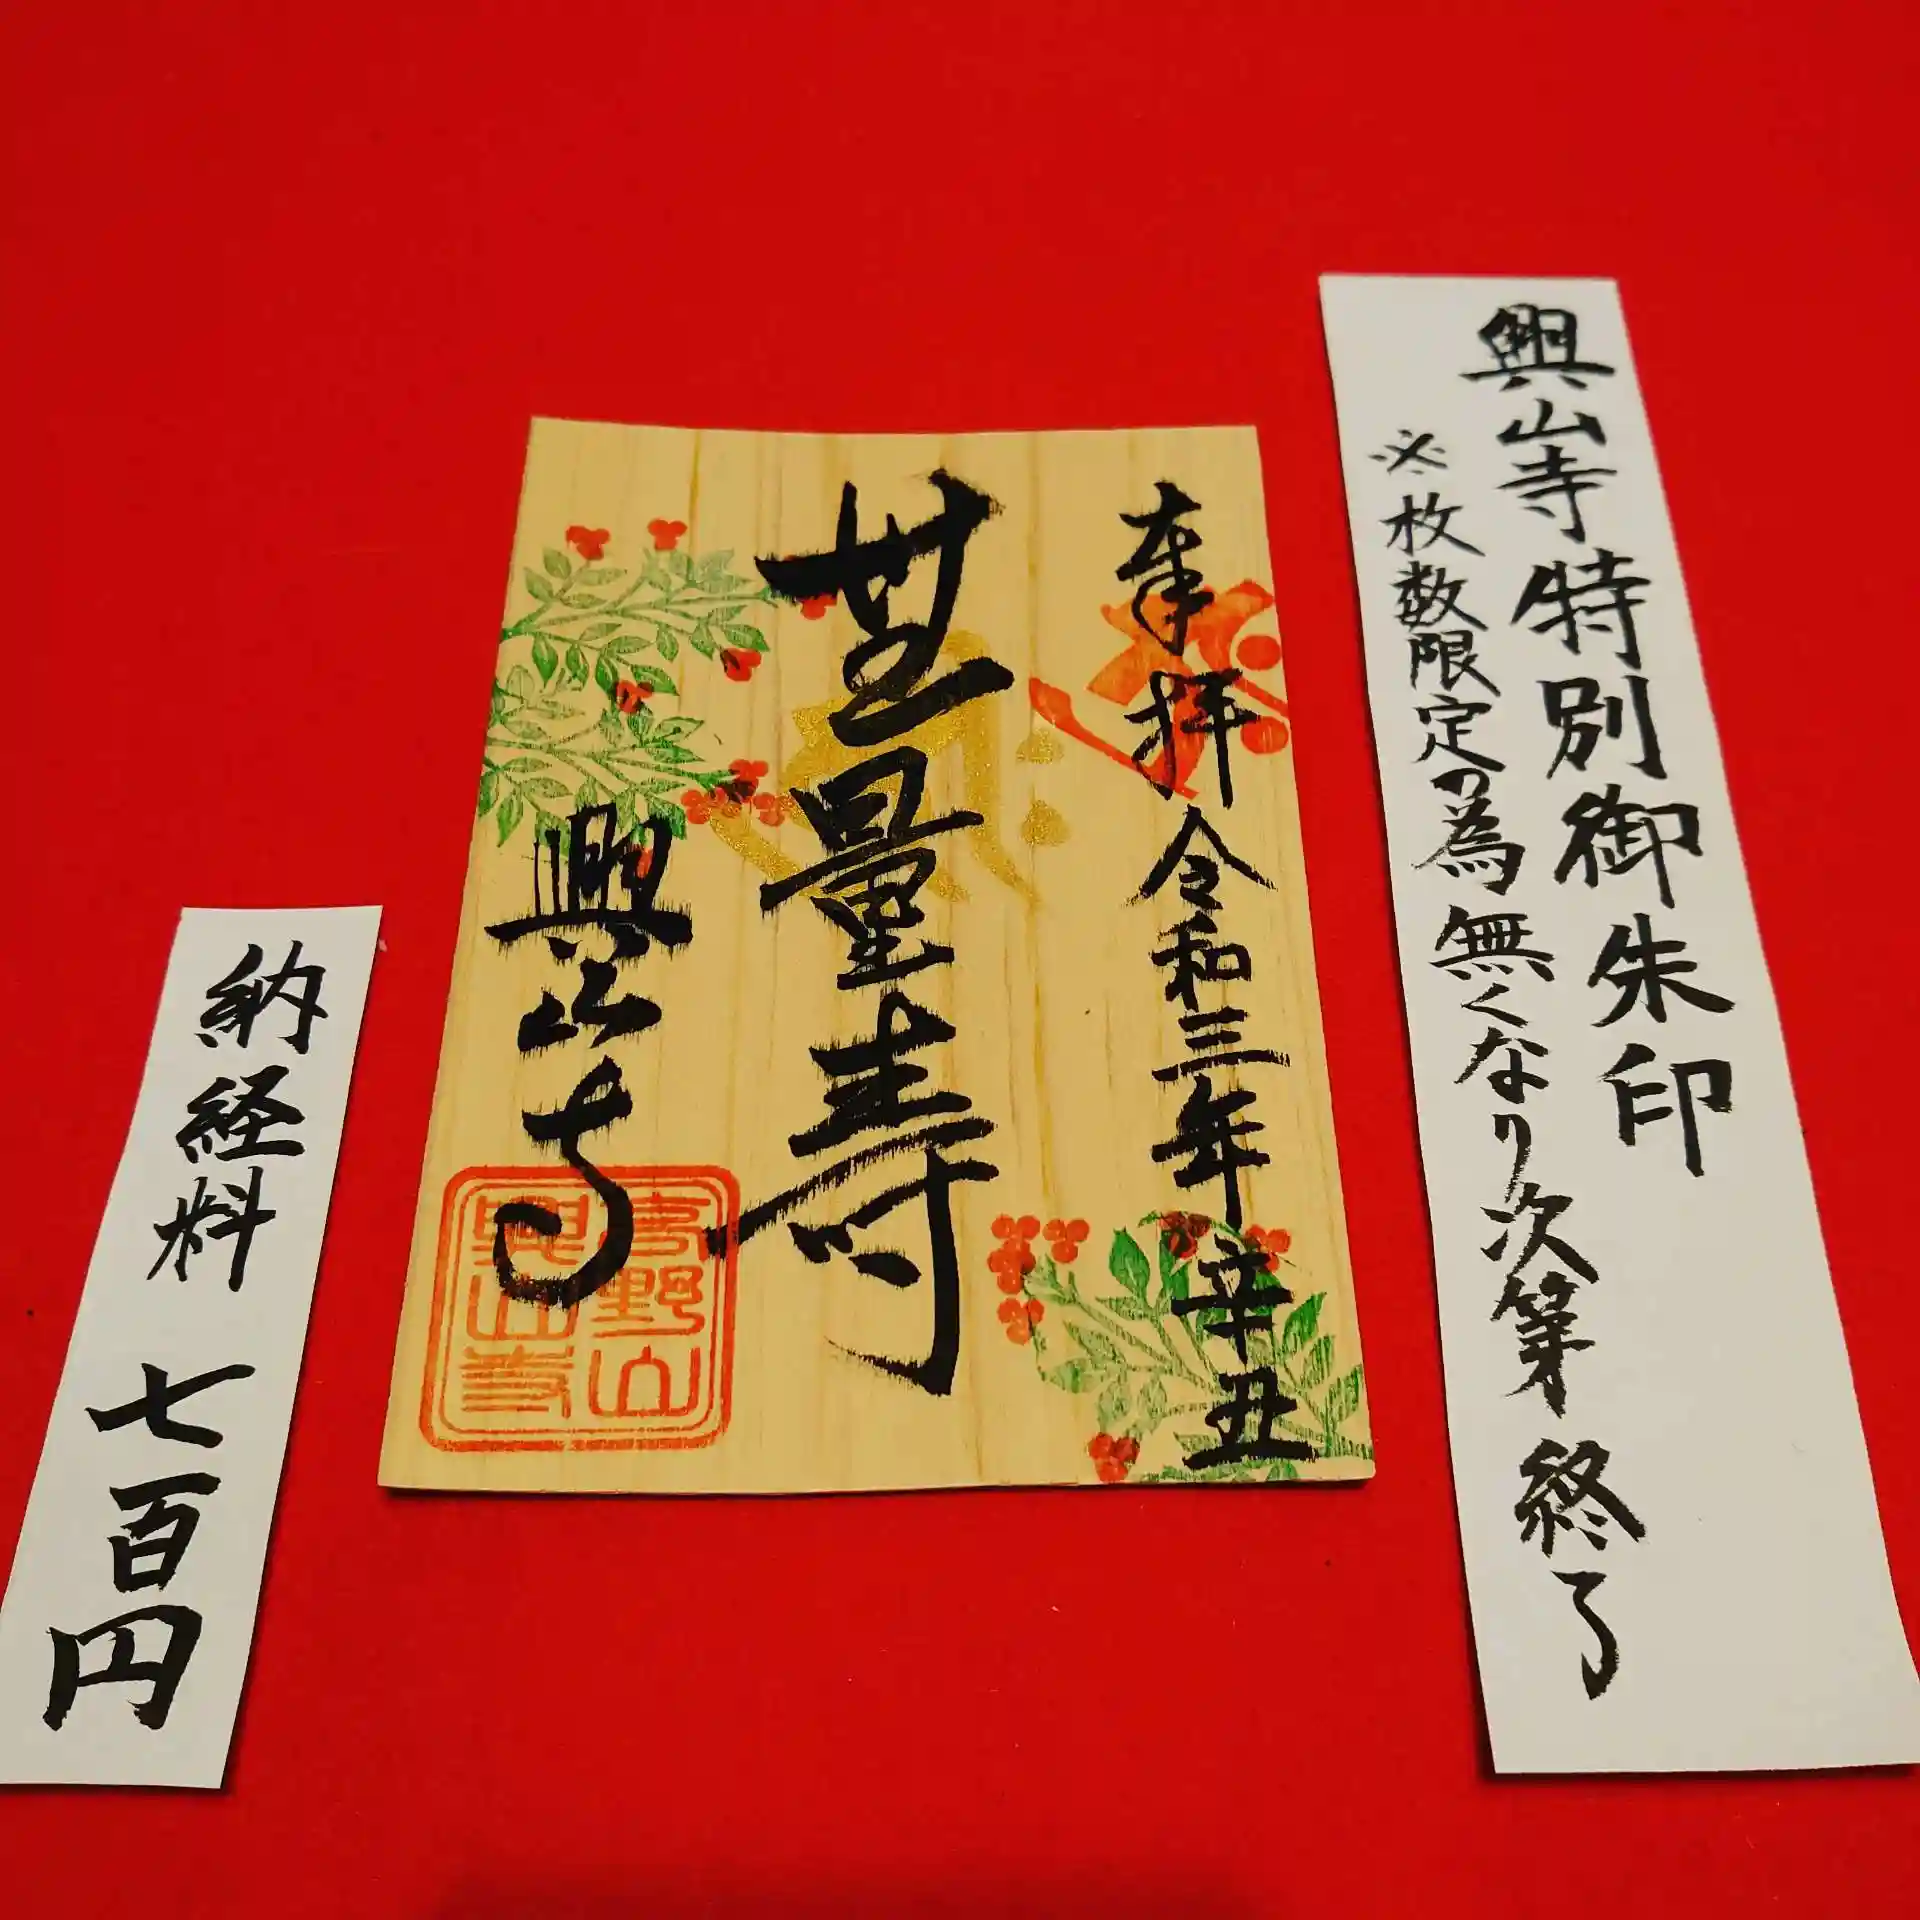 興山寺特別御朱印
※枚数限定の為無くなり次第終了
奉拝 令和三年 辛丑
無量寿
興山寺
高野山
興山寺
納経料 七百円